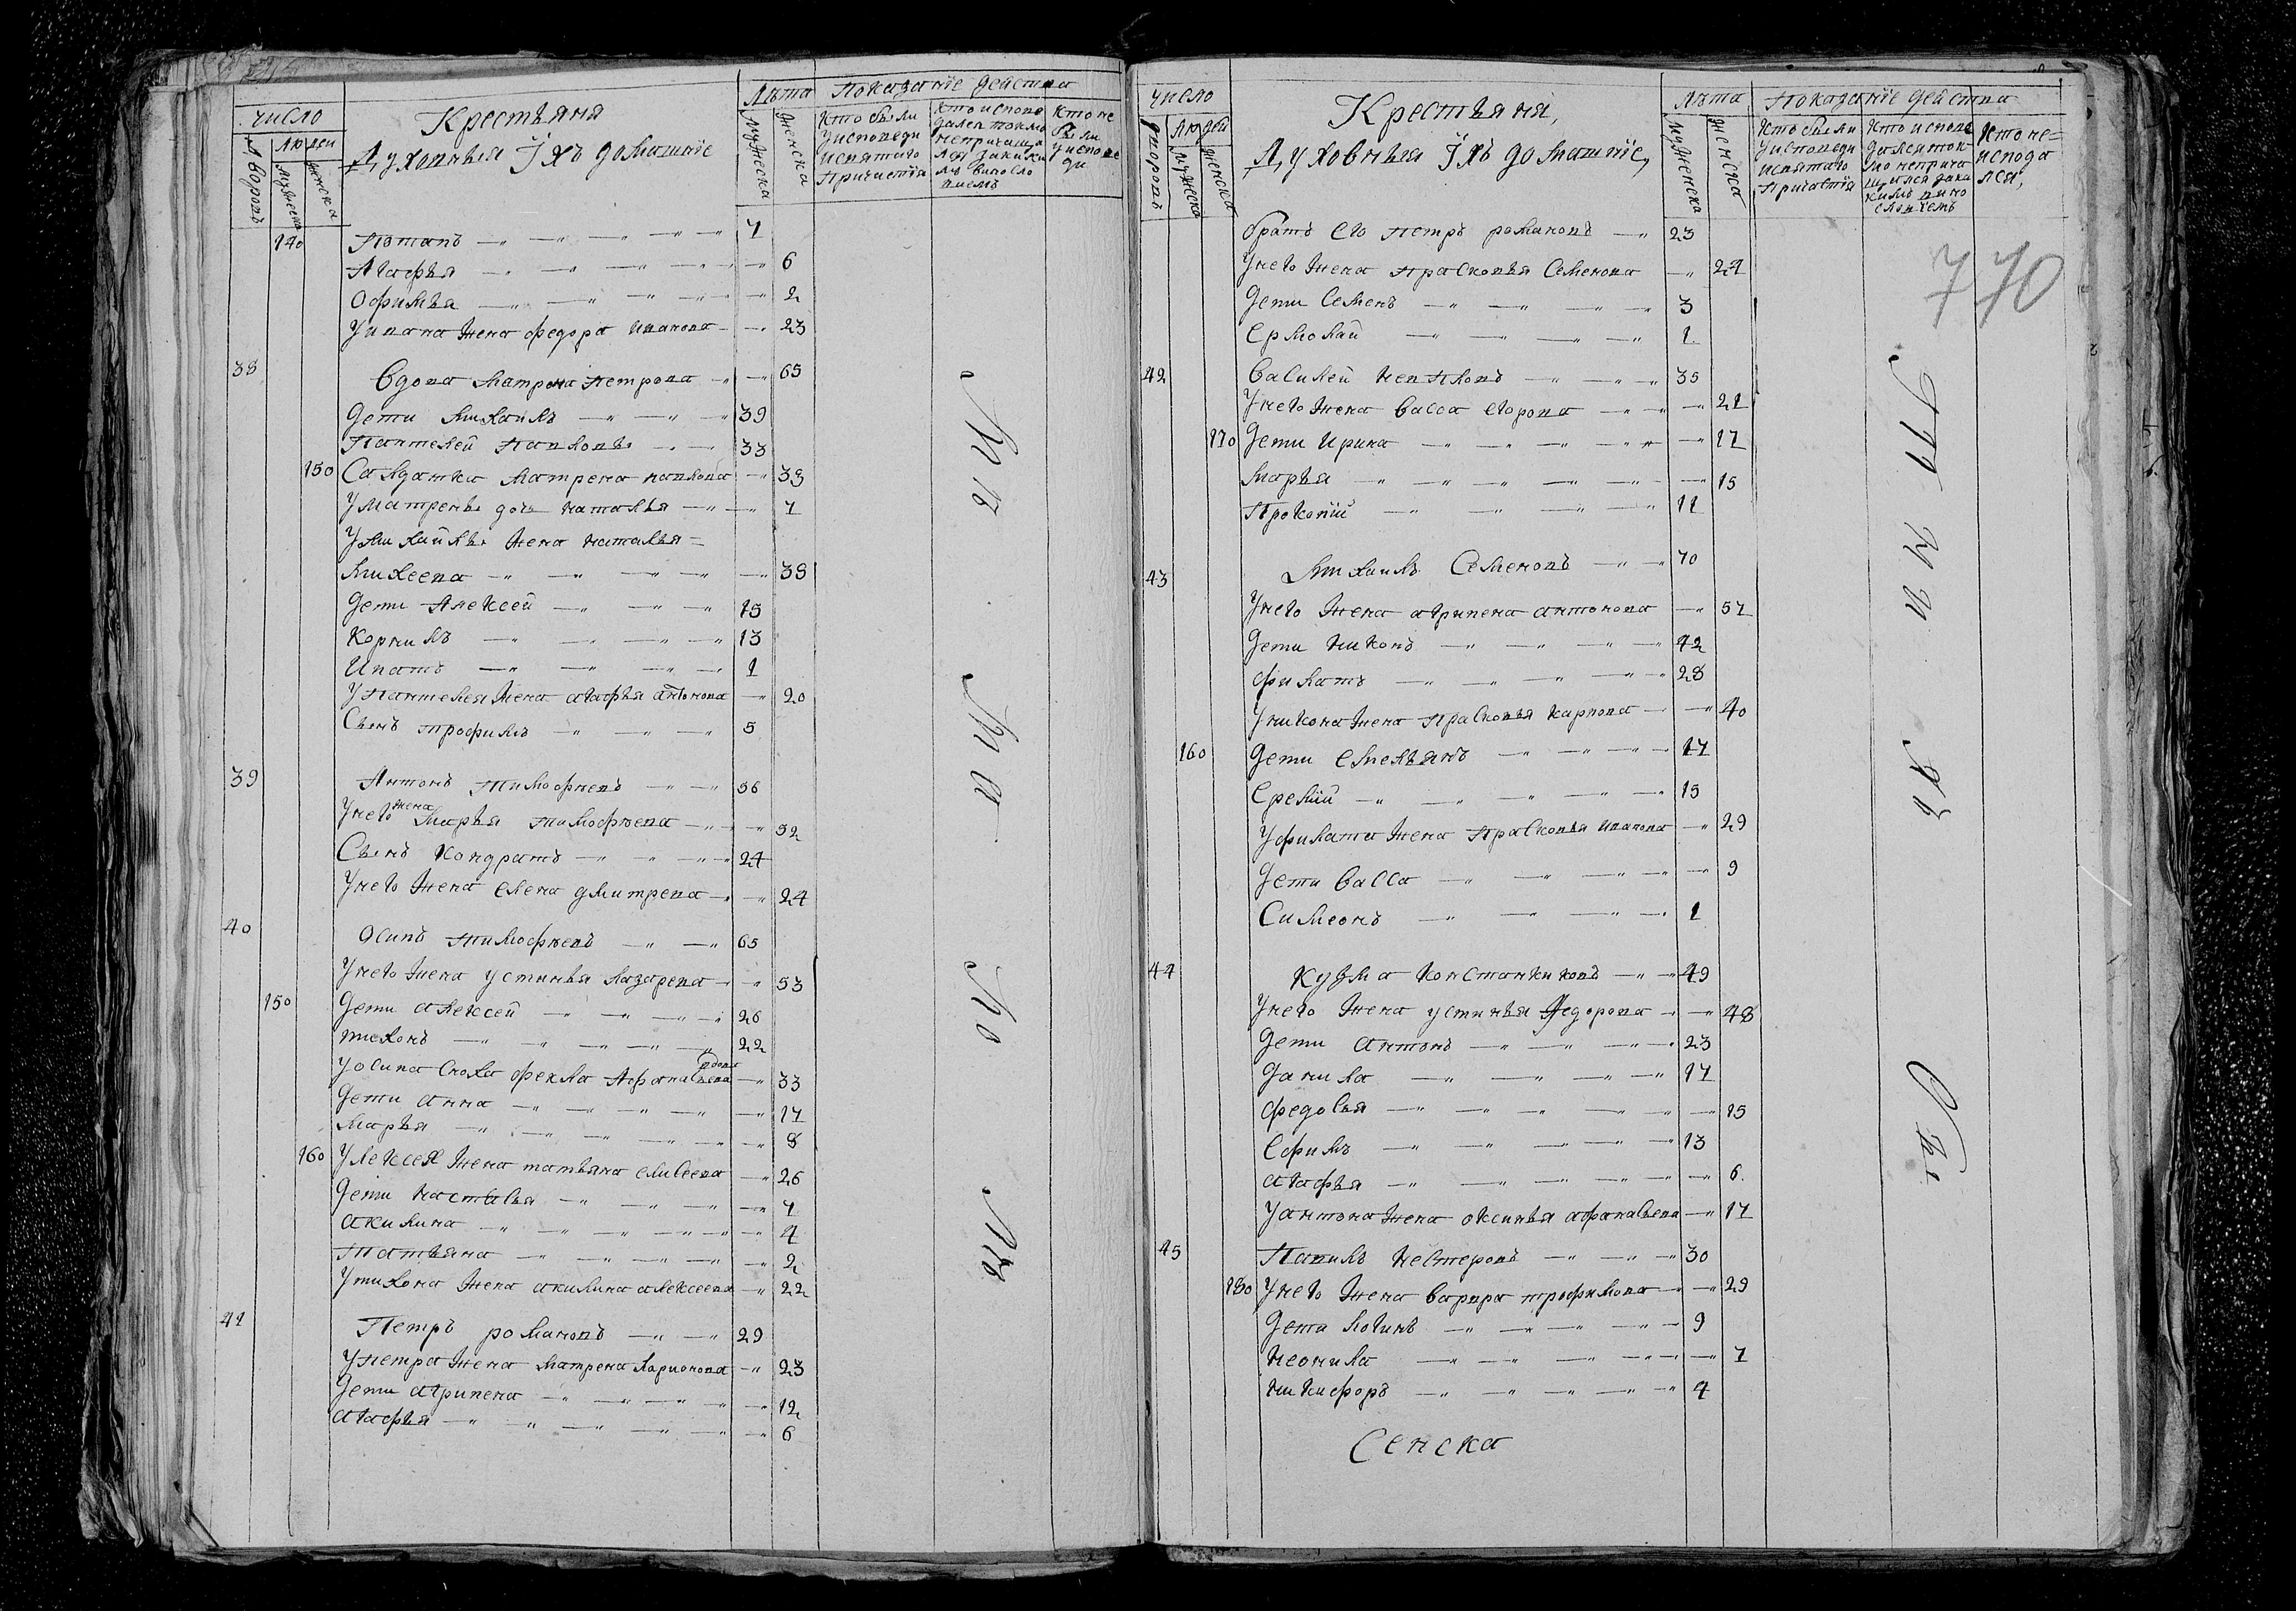 число
Крестьяня
Духовныя Їхъ домашнїе
Лѣта
показанїе действа
дворовъ
людеи
мужеска
женска
мужеска
женска
Кто были у исповеди и святаго причастїя
кто исповедался токмо не причащался
кто не были у исповеди
140 Потапъ 7
Агафья 6
Офимья 2
У ивана жена федора иванова 23
38 Вдова матрена петрова 65
Дети михаилъ 39
Пантелей павловъ 33
150 Салдатка матрена павлова 33
У матрены дочь наталья 7
У михаилы жена наталья =
михеева 38
Дети Алексей 15
корнилъ 13
Ипатъ 1
У пантелея жена агафья антонова 20
Сынъ трофимъ 5
39 Антонъ тимофѣевъ 56
У него жена марья тимофѣева 52
Сынъ кондратъ 24
У него жена елена дмитрева 24
40 Осипъ тимофѣевъ 65
У него жена устинья лазарева 53
150 Дети алексей 26
тихонъ 22
У осипа сноха фекла Афанасьева вдова 33
Дети анна 17
марья 8
160 У алексея жена татьяна елисеева 26
Дети настасья 7
акилина 4
Татьяна 2
У тихона жена акилина алексеева 22
41 Петръ романовъ 29
У петра жена матрена ларионова 23
Дети агрипена 12
агафья 6
число
Крестьяня,
Духовныя Їхъ домашнїе,
Лѣта
показанїе действа
дворовъ
людей
мужеска
женска
мужеска
женска
Кто были у исповеди и святаго причастїя
кто исповедался токмо не причащался
кто не исповедался,
770
братъ его петръ романовъ 23
У него жена прасковья семенова 24
Дети семенъ 3
Ермолай 1
42 Василей неплюовъ 35
У него жена васса егорова 21
170 Дети ирина 17
марья 15
Прокопий 11
43 михаилъ Семеновъ 70
У него жена агрипена антонова 57
Дети никонъ 42
филатъ 28
У никона жена прасковья карпова 40
160 Дети емельянъ 17
Еремий 15
У филата жена прасковья иванова 29
Дети васса 9
Симеонъ 1
44 Кузма константиновъ 49
У него жена устинья федорова 48
Дети антонъ 23
данила 17
федосья 15
Ефимъ 13
агафья 6
У антона жена оксинья афанасьева 17
45 Павилъ нестеровъ 30
180 У него жена варвара трофимова 29
Дети логинъ 9
неонила 7
никифоръ 4
Сенска